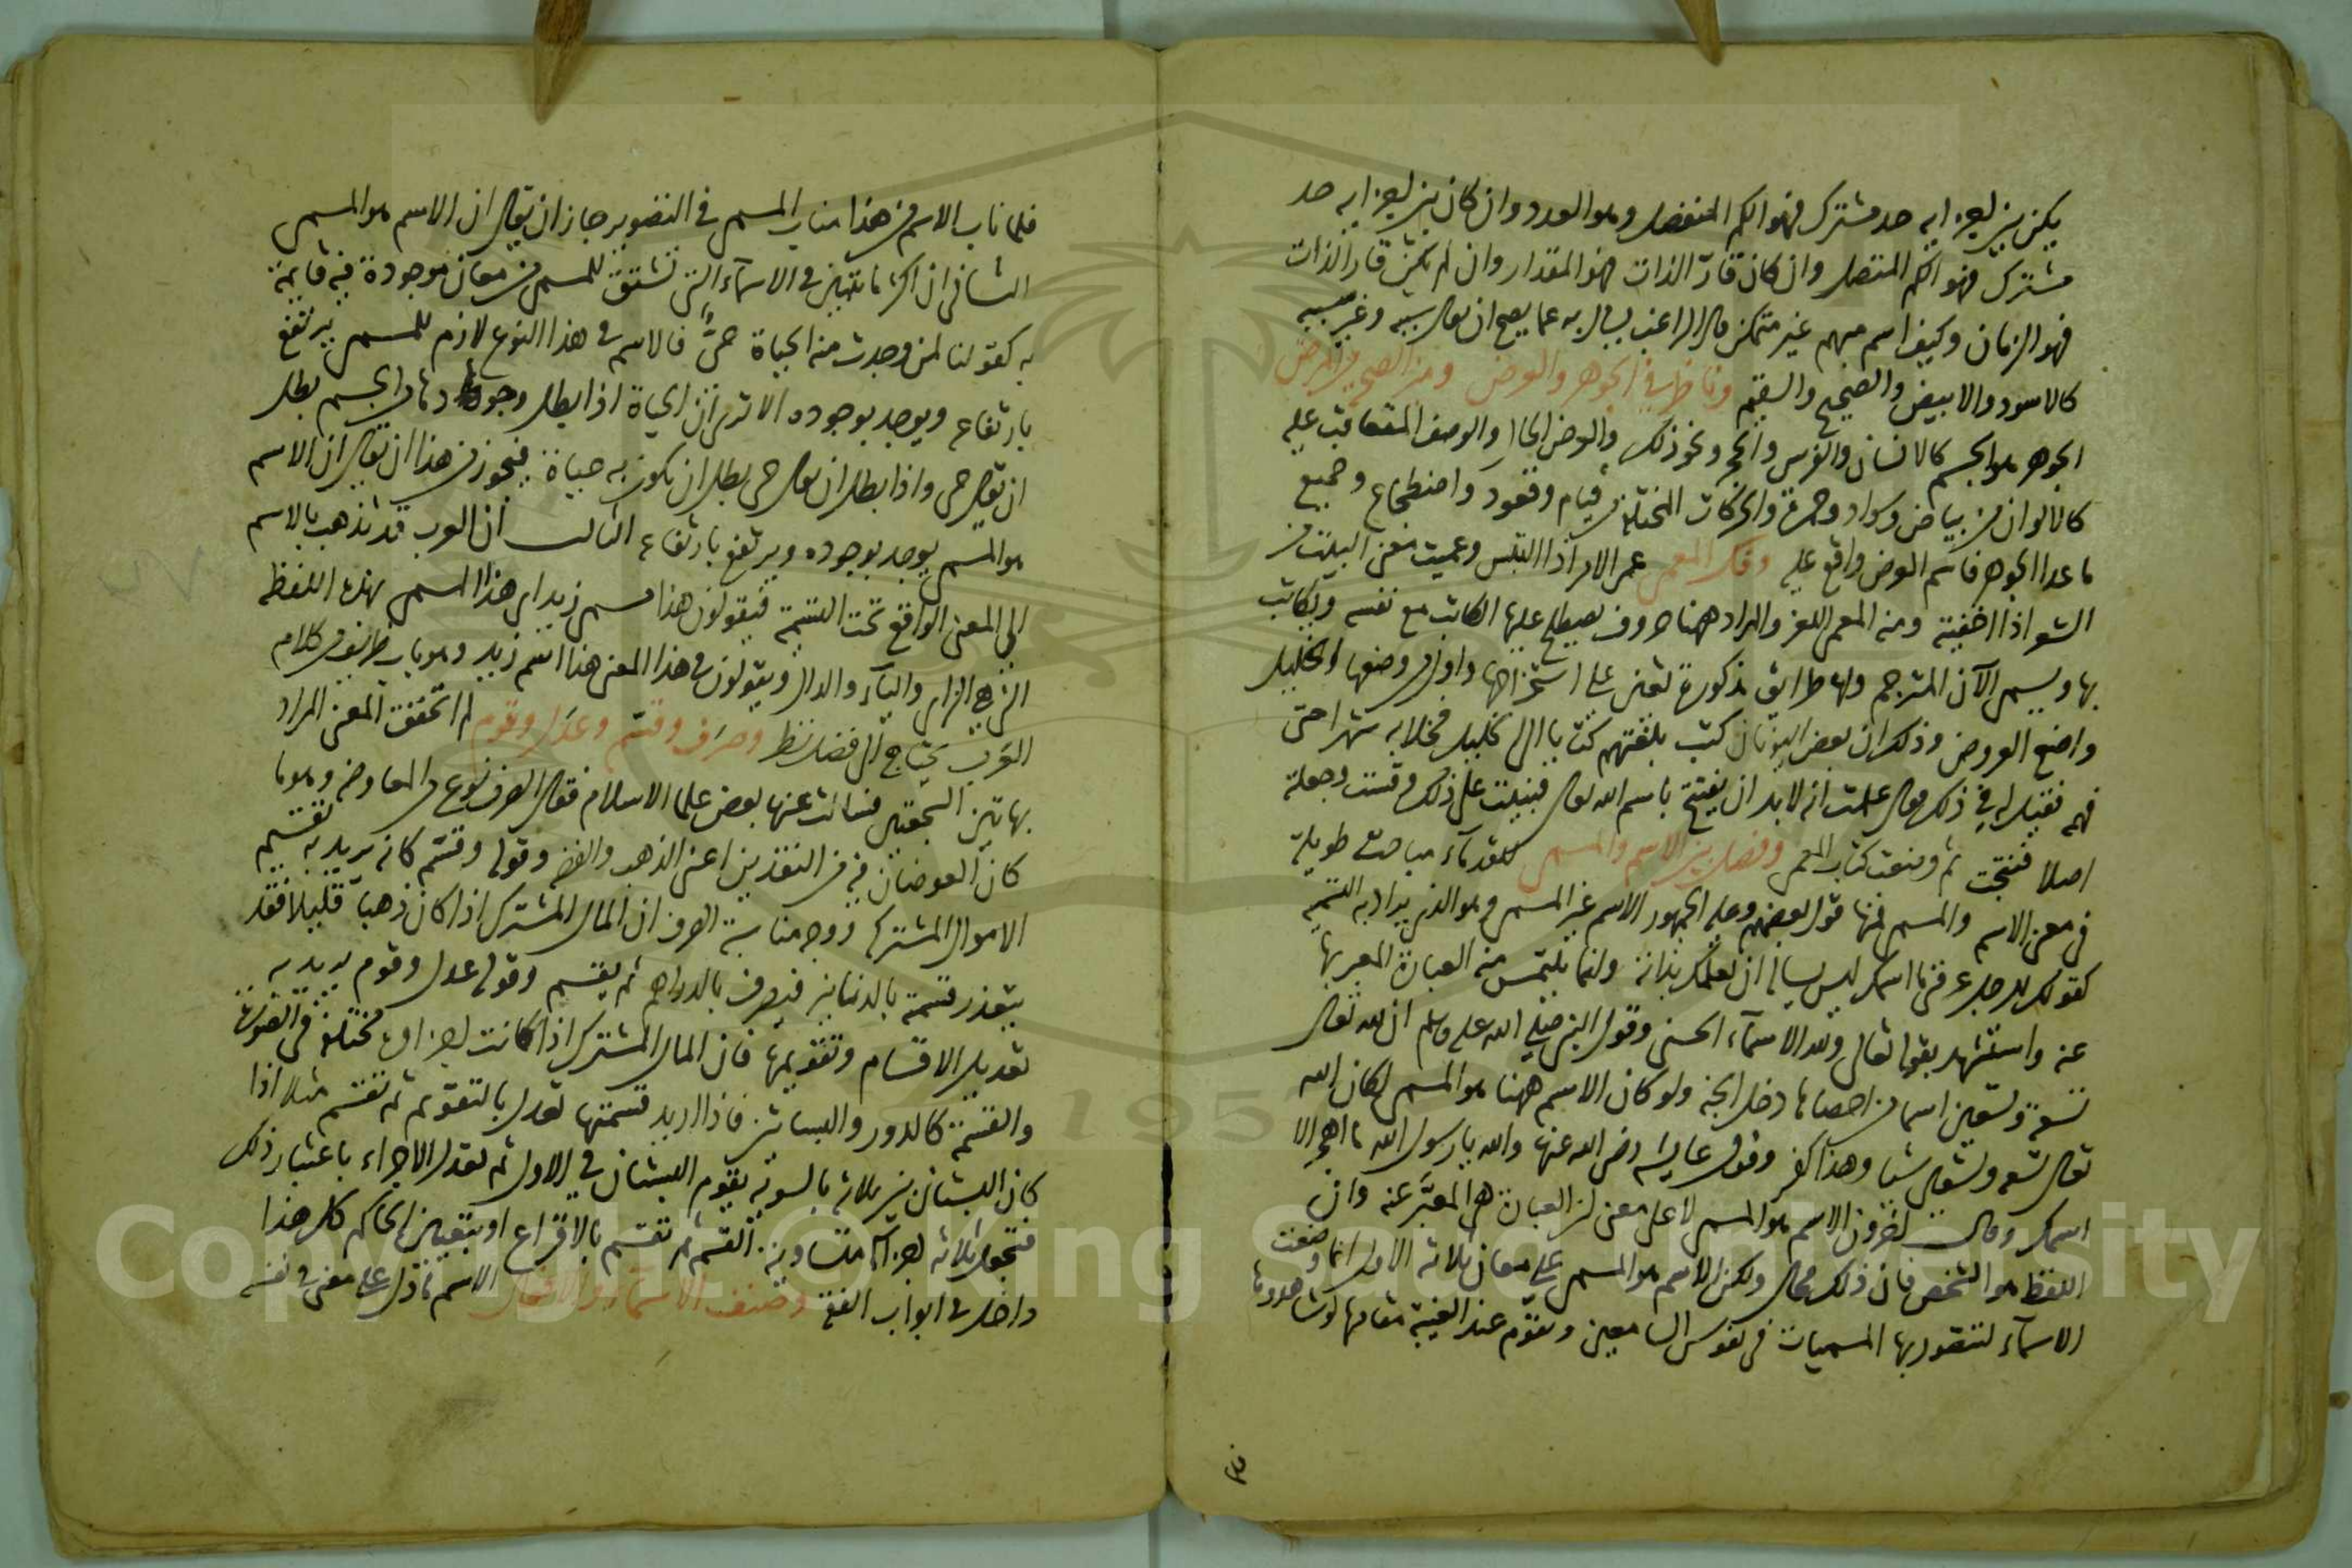 يكن بين اجزائه حد مشترك فهو الكم المنفصل وهو العدد وان كان بين اجزائه حد
مشترك فهو الكم المتصل وان كان قارّ الذات فهو المقدار وان لم يكن قار الذات
فهو الزمان وكيف اسم مبهم غير متمكن قال الراغب يسال به عما يصح ان يقال شبيه وغير شبيه
كالاسود والابيض والصحيح والسقيم وناظر في الجوهر والعرض وميز الصحيح من المرض
الجوهر هو الجسم كالانسان والفرس والحجر ونحو ذلك والعرض الحال والوصف المتعاقب عليه
كالالوان من بياض وسواد وحمرة والحركات المختلفة من قيام وقعود واضطجاع وجميع
ما عدا الجوهر فاسم العرض واقع عليه وفك المعمى عمى الامر اذا التبس وعميت معنى البيت من
الشعر اذا اخفيته ومنه المعمى اللغز والمراد ههنا حروف يصطلح عليها الكاتب مع نفسه ويكاتب
بها ويسمى الآن المترجم ولها طرائق مذكورة تعين على استخراجها واول من وضعها الخليل
واضع العروض وذلك ان بعض اليونان كتب بلغتهم كتابا الى الخليل فخلا به شهرا حتى
فهمه فقيل له في ذلك فقال علمت انه لابد ان يفتتح باسم الله تعالى فبنيت على ذلك وقست وجعلته
اصلا ففتحت ثم وضعت كتاب المعمى وفصل بين الاسم والمسمى للقدماء مباحث طويلة
في معنى الاسم والمسمى فمنها قول بعضهم وعليه الجمهور الاسم غير المسمى وهو الذي يراد به التسمية
كقولك للرجل عرفني ما اسمك ليس يسأله ان يعلمك بذاته وانما يلتمس منه العبارة المعبر بها
عنه واستشهد بقوله تعالى ولله الاسماء الحسنى وقول النبي صلى الله عليه وسلم ان لله تعالى
تسعة وتسعين اسما من احصاها دخل الجنة ولو كان الاسم ههنا هو المسمى لكان الله
تعالى تسعة وتسعين شيئا وهذا كفر وقول عايشة رضي الله عنها والله يا رسول الله ما اهجر الا
اسمك وقال آخرون الاسم هو المسمى لا على معنى ان العبارة هي المعبَّر عنه وان
اللفظ هو الشخص فان ذلك محال ولكن الاسم هو المسمى على معان ثلاثة الاول انما وضعت
الاسماء لتتصور بها المسميات في نفوس السامعين وتقوم عند الغيبة مقامها لو شاهدوها
فلما ناب الاسم من هذا مناب المسمى في التصوير جاز ان يقال ان الاسم هو المسمى
الثاني ان اكثر ما يتبين في الاسماء التي تشتق للمسمى من معان موجودة فيه قايمة
به كقولنا لمن وجدت منه الحياة حيٌّ فالاسم في هذا النوع لازم للمسمى يرتفع
بارتفاعه ويوجد بوجوده الا ترى ان الحياة اذا بطل وجودها من الجسم بطل
ان يقال حي واذا بطل ان يقال حي بطل ان يكون به حياة فيجوز من هذا ان يقال ان الاسم
هو المسمى يوجد بوجوده ويرتفع بارتفاعه الثالث ان العرب قد تذهب بالاسم
الى المعنى الواقع تحت التسمية فيقولون هذا مسمى زيد اي هذا المسمى بهذه اللفظة
التي هي الزاي والياء والدال ويقولون في هذا المعنى هذا اسم زيد وهو باب ظريف في كلام
العرب يحتاج الى فضل نظر وصرف وقسّم وعدل وقوم لم اتحقق المعنى المراد
بهاتين السجعتين فسالت عنها بعض علما الاسلام فقال الصرف نوع من المعاوضه وهو ما
كان العوضان فيه من النقدين اعني الذهب والفضة وقوله وقسّم كانه يريد به تقسيم
الاموال المشتركه ووجه مناسبة الصرف ان المال المشترك اذا كان ذهبا قليلا فقد
يتعذر قسمته بالدنانير فيصرف بالدراهم ثم يقسم وقوله عدل وقوم يريد به
تعديل الاقسام وتقويمها فان المال المشترك اذا كانت اجزاوه مختلفة في الصورة
والقسمة كالدور والبساتين فاذا اريد قسمتها تعدل بالتقويم ثم تقسم مثلا اذا
كان البستان بين ثلاثة بالسوية يقوم البستان في الاول ثم تعدل الاجزاء باعتبار ذلك
فتجعل ثلاثه اجزاء متساوية القسم ثم تقسم بالاقراع او بتعيين الحاكم كل هذا
داخل في ابواب الفقه وصنف الاسماء والافعال الاسم ما دل على معنى في نفسه
Copyright © King Saud University
1957